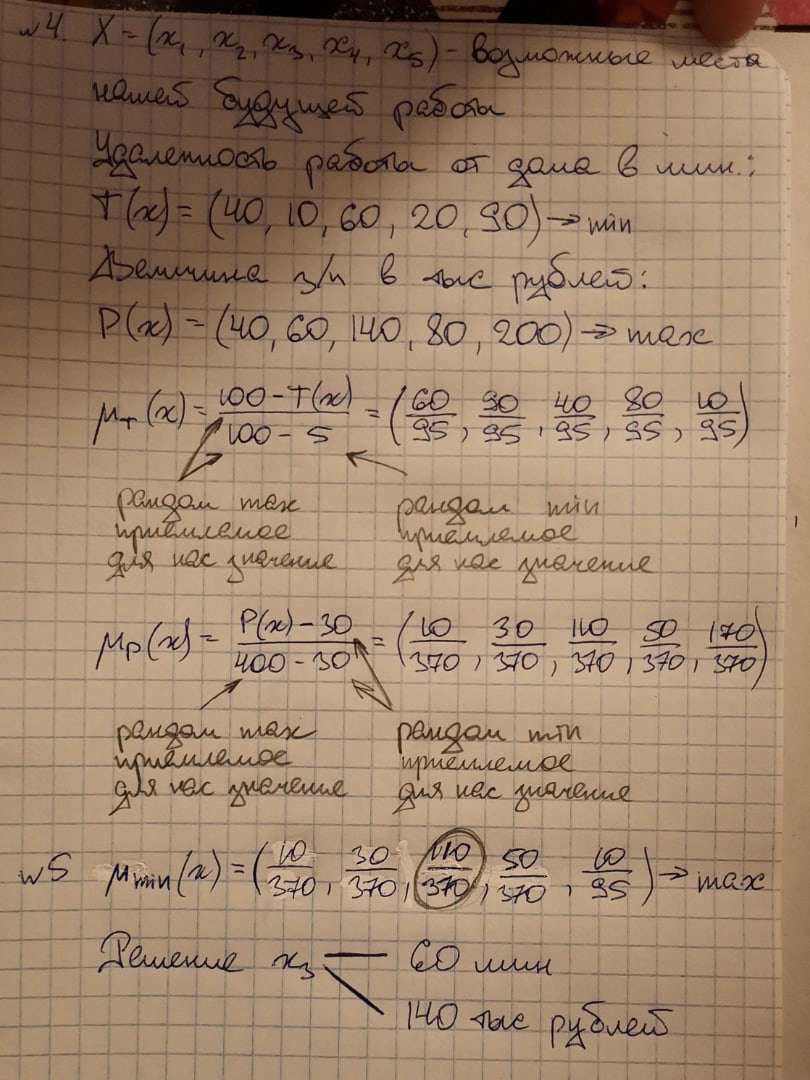 №4. X = (x₁, x₂, x₃, x₄, x₅) - возможные места
нашей будущей работы
Удаленность работы от дома в мин.:
T(x) = (40, 10, 60, 20, 90) → min
Величина з/п в тыс рублей:
P(x) = (40, 60, 140, 80, 200) → max
μ_T(x) = (100 - T(x))/(100 - 5) = (60/95, 90/95, 40/95, 80/95, 10/95)
рандом max рандом min
приемлемое приемлемое
для нас значение для нас значение
μ_P(x) = (P(x) - 30)/(400 - 30) = (10/370, 30/370, 110/370, 50/370, 170/370)
рандом max рандом min
приемлемое приемлемое
для нас значение для нас значение
№5 μ_min(x) = (10/370, 30/370, 110/370, 50/370, 10/95) → max
Решение x₃ — 60 мин
140 тыс рублей